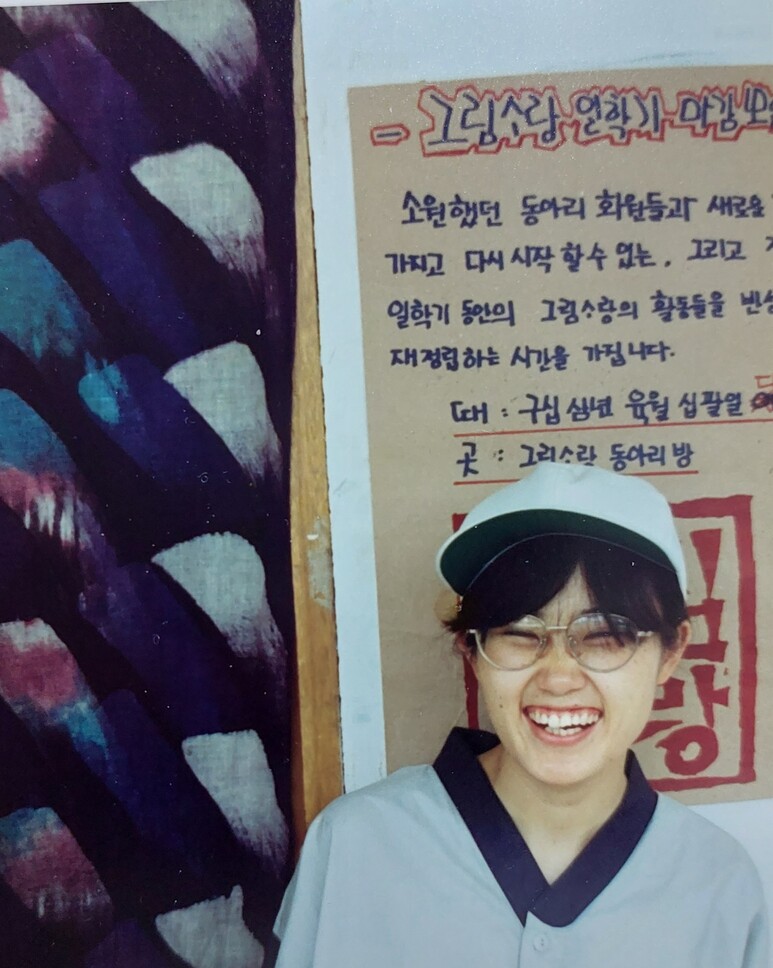 - 그림소랑 일학기 마감모
소원했던 동아리 화원들과 새로운
가지고 다시 시작 할 수 있는, 그리고
일학기 동안의 그림소랑의 활동들을 반성
재정립하는 시간을 가집니다.
때 : 구십 삼년 육월 십팔일
곳 : 그림소랑 동아리 방